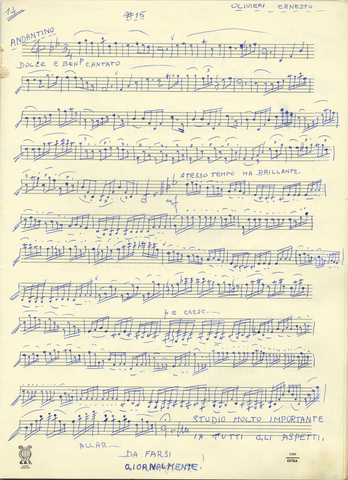 14
#15
OLIVIERI ERNESTO
ANDANTINO
DOLCE E BEN CANTATO
STESSO TEMPO MA BRILLANTE.
mf
p e CRESC---
STUDIO MOLTO IMPORTANTE
IN TUTTI GLI ASPETTI.
ALLAR---
DA FARSI
GIORNALMENTE!